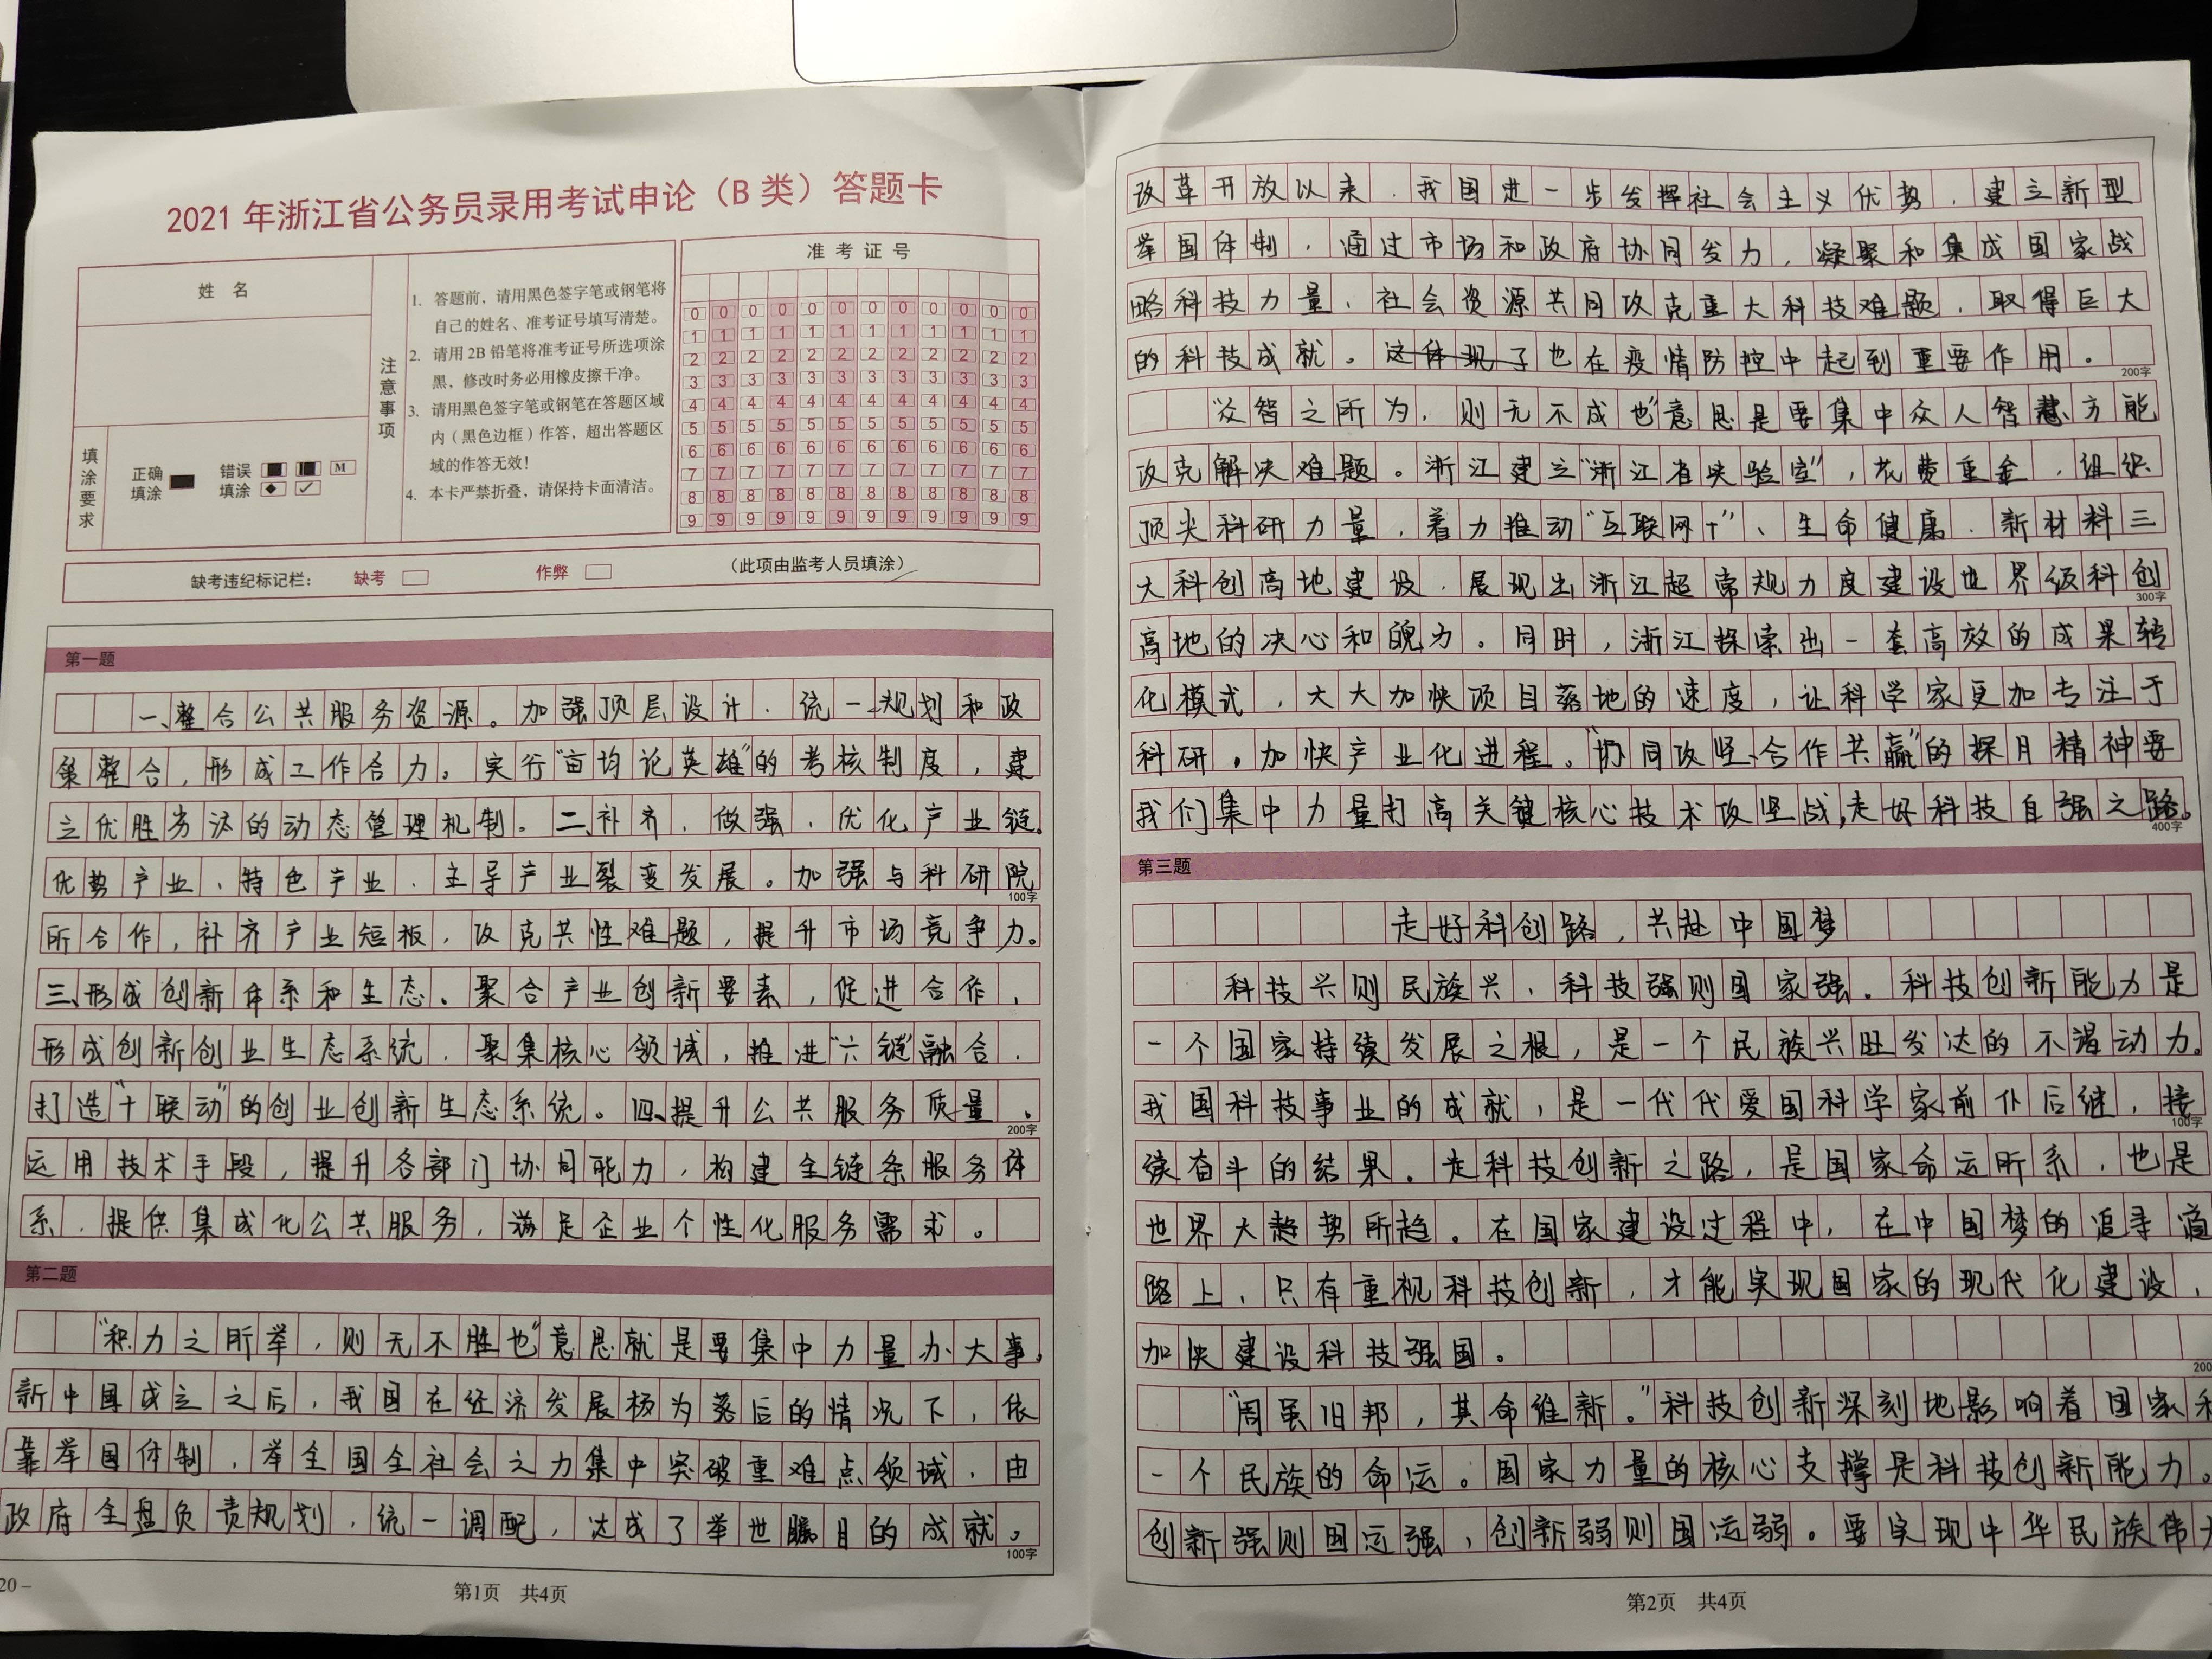 2021年浙江省公务员录用考试申论（B类）答题卡
姓 名
注意事项
1. 答题前，请用黑色签字笔或钢笔将
自己的姓名、准考证号填写清楚。
2. 请用2B铅笔将准考证号所选项涂
黑、修改时务必用橡皮擦干净。
3. 请用黑色签字笔或钢笔在答题区域
内（黑色边框）作答，超出答题区
域的作答无效！
4. 本卡严禁折叠，请保持卡面清洁。
填涂要求
正确填涂
错误填涂
M
准 考 证 号
0 0 0 0 0 0 0 0 0 0 0 0
1 1 1 1 1 1 1 1 1 1 1 1
2 2 2 2 2 2 2 2 2 2 2 2
3 3 3 3 3 3 3 3 3 3 3 3
4 4 4 4 4 4 4 4 4 4 4 4
5 5 5 5 5 5 5 5 5 5 5 5
6 6 6 6 6 6 6 6 6 6 6 6
7 7 7 7 7 7 7 7 7 7 7 7
8 8 8 8 8 8 8 8 8 8 8 8
9 9 9 9 9 9 9 9 9 9 9 9
缺考违纪标记栏： 缺考 作弊 （此项由监考人员填涂）
第一题
一、整合公共服务资源。加强顶层设计，统一规划和政
策整合，形成工作合力。实行“亩均论英雄”的考核制度，建
立优胜劣汰的动态管理机制。二、补齐、做强、优化产业链。
优势产业、特色产业、主导产业裂变发展。加强与科研院
100字
所合作，补齐产业短板，攻克共性难题，提升市场竞争力。
三、形成创新体系和生态。聚合产业创新要素，促进合作，
形成创新创业生态系统，聚集核心领域，推进“六链”融合，
打造“十联动”的创业创新生态系统。四、提升公共服务质量，
200字
运用技术手段，提升各部门协同能力，构建全链条服务体
系，提供集成化公共服务，满足企业个性化服务需求。
第二题
“积力之所举，则无不胜也”意思就是要集中力量办大事。
新中国成立之后，我国在经济发展极为落后的情况下，依
靠举国体制，举全国全社会之力集中突破重难点领域，由
政府全盘负责规划，统一调配，达成了举世瞩目的成就。
100字
20 –
第1页 共4页
改革开放以来，我国进一步发挥社会主义优势，建立新型
举国体制，通过市场和政府协同发力，凝聚和集成国家战
略科技力量、社会资源共同攻克重大科技难题，取得巨大
的科技成就。这体现了也在疫情防控中起到重要作用。
200字
“众智之所为，则无不成也”意思是要集中众人智慧，方能
攻克解决难题。浙江建立“浙江省实验室”，花费重金，组织
顶尖科研力量，着力推动“互联网+”、生命健康、新材料三
大科创高地建设，展现出浙江超常规力度建设世界级科创
300字
高地的决心和魄力。同时，浙江探索出一套高效的成果转
化模式，大大加快项目落地的速度，让科学家更加专注于
科研。加快产业化进程。“协同攻坚、合作共赢”的探月精神要
我们集中力量打高关键核心技术攻坚战，走好科技自强之路。
400字
第三题
走好科创路，共赴中国梦
科技兴则民族兴，科技强则国家强。科技创新能力是
一个国家持续发展之根，是一个民族兴旺发达的不竭动力。
我国科技事业的成就，是一代代爱国科学家前仆后继，接
100字
续奋斗的结果。走科技创新之路，是国家命运所系，也是
世界大趋势所趋。在国家建设过程中，在中国梦的追寻道
路上，只有重视科技创新，才能实现国家的现代化建设，
加快建设科技强国。
200
“周虽旧邦，其命维新。”科技创新深刻地影响着国家和
一个民族的命运。国家力量的核心支撑是科技创新能力。
创新强则国运强，创新弱则国运弱。要实现中华民族伟大
第2页 共4页